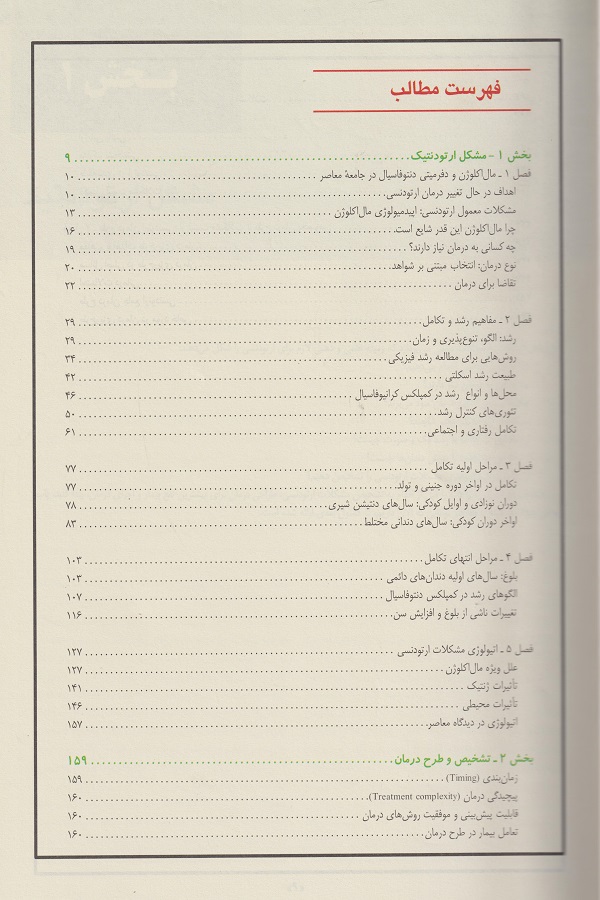 فهرست مطالب
بخش ۱ - مشکل ارتودنتیک ۹
فصل ۱ ـ مال‌اکلوژن و دفرمیتی دنتوفاسیال در جامعهٔ معاصر ۱۰
اهداف در حال تغییر درمان ارتودنسی ۱۰
مشکلات معمول ارتودنسی: اپیدمیولوژی مال‌اکلوژن ۱۳
چرا مال‌اکلوژن این قدر شایع است ۱۶
چه کسانی به درمان نیاز دارند؟ ۱۹
نوع درمان: انتخاب مبتنی بر شواهد ۲۰
تقاضا برای درمان ۲۲
فصل ۲ ـ مفاهیم رشد و تکامل ۲۹
رشد: الگو، تنوع‌پذیری و زمان ۲۹
روش‌هایی برای مطالعه رشد فیزیکی ۳۴
طبیعت رشد اسکلتی ۴۲
محل‌ها و انواع رشد در کمپلکس کرانیوفاسیال ۴۶
تئوری‌های کنترل رشد ۵۰
تکامل رفتاری و اجتماعی ۶۱
فصل ۳ ـ مراحل اولیه تکامل ۷۷
تکامل در اواخر دوره جنینی و تولد ۷۷
دوران نوزادی و اوایل کودکی: سال‌های دنتیشن شیری ۷۸
اواخر دوران کودکی: سال‌های دندانی مختلط ۸۳
فصل ۴ ـ مراحل انتهای تکامل ۱۰۳
بلوغ: سال‌های اولیه دندان‌های دائمی ۱۰۳
الگوهای رشد در کمپلکس دنتوفاسیال ۱۰۷
تغییرات ناشی از بلوغ و افزایش سن ۱۱۶
فصل ۵ ـ اتیولوژی مشکلات ارتودنسی ۱۲۷
علل ویژه مال‌اکلوژن ۱۲۷
تأثیرات ژنتیک ۱۴۱
تأثیرات محیطی ۱۴۶
اتیولوژی در دیدگاه معاصر ۱۵۷
بخش ۲ ـ تشخیص و طرح درمان ۱۵۹
زمان‌بندی (Timing) ۱۵۹
پیچیدگی درمان (Treatment complexity) ۱۶۰
قابلیت پیش‌بینی و موفقیت روش‌های درمان ۱۶۰
تعامل بیمار در طرح درمان ۱۶۰